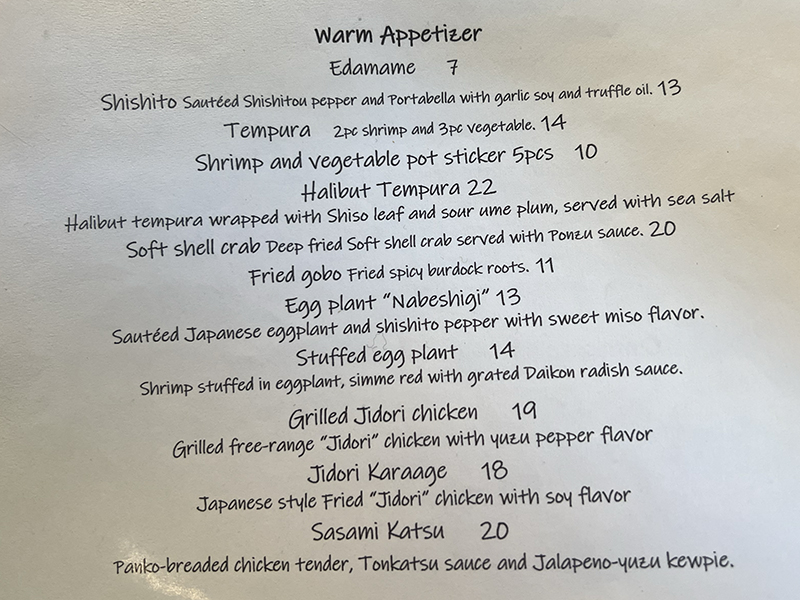 Warm Appetizer
Edamame 7
Shishito Sautéed Shishitou pepper and Portabella with garlic soy and truffle oil. 13
Tempura 2pc shrimp and 3pc vegetable. 14
Shrimp and vegetable pot sticker 5pcs 10
Halibut Tempura 22
Halibut tempura wrapped with Shiso leaf and sour ume plum, served with sea salt
Soft shell crab Deep fried Soft shell crab served with Ponzu sauce. 20
Fried gobo Fried spicy burdock roots. 11
Egg plant “Nabeshigi” 13
Sautéed Japanese eggplant and shishito pepper with sweet miso flavor.
Stuffed egg plant 14
Shrimp stuffed in eggplant, simme red with grated Daikon radish sauce.
Grilled Jidori chicken 19
Grilled free-range “Jidori” chicken with yuzu pepper flavor
Jidori Karaage 18
Japanese style Fried “Jidori” chicken with soy flavor
Sasami Katsu 20
Panko-breaded chicken tender, Tonkatsu sauce and Jalapeno-yuzu kewpie.